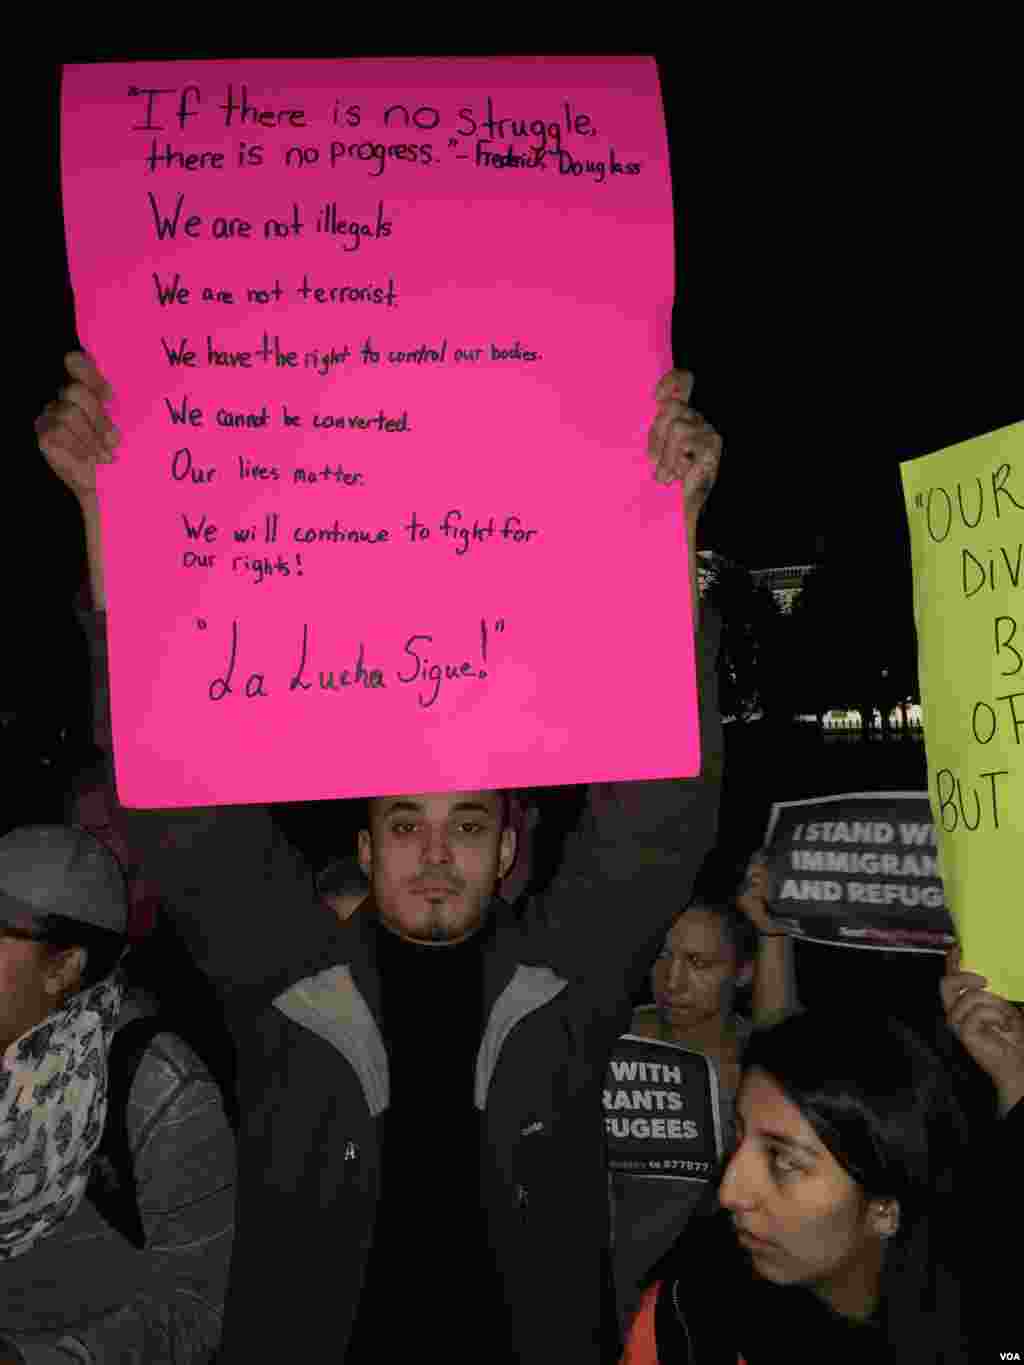 "If there is no struggle,
there is no progress." - Frederick Douglass
We are not illegals
We are not terrorist.
We have the right to control our bodies.
We cannot be converted.
Our lives matter.
We will continue to fight for
our rights!
"La Lucha Sigue!"
"OUR
DIV
B
OF
BUT
I STAND WI
IMMIGRAN
AND REFUG
WITH
RANTS
FUGEES
to 877877
A
VOA